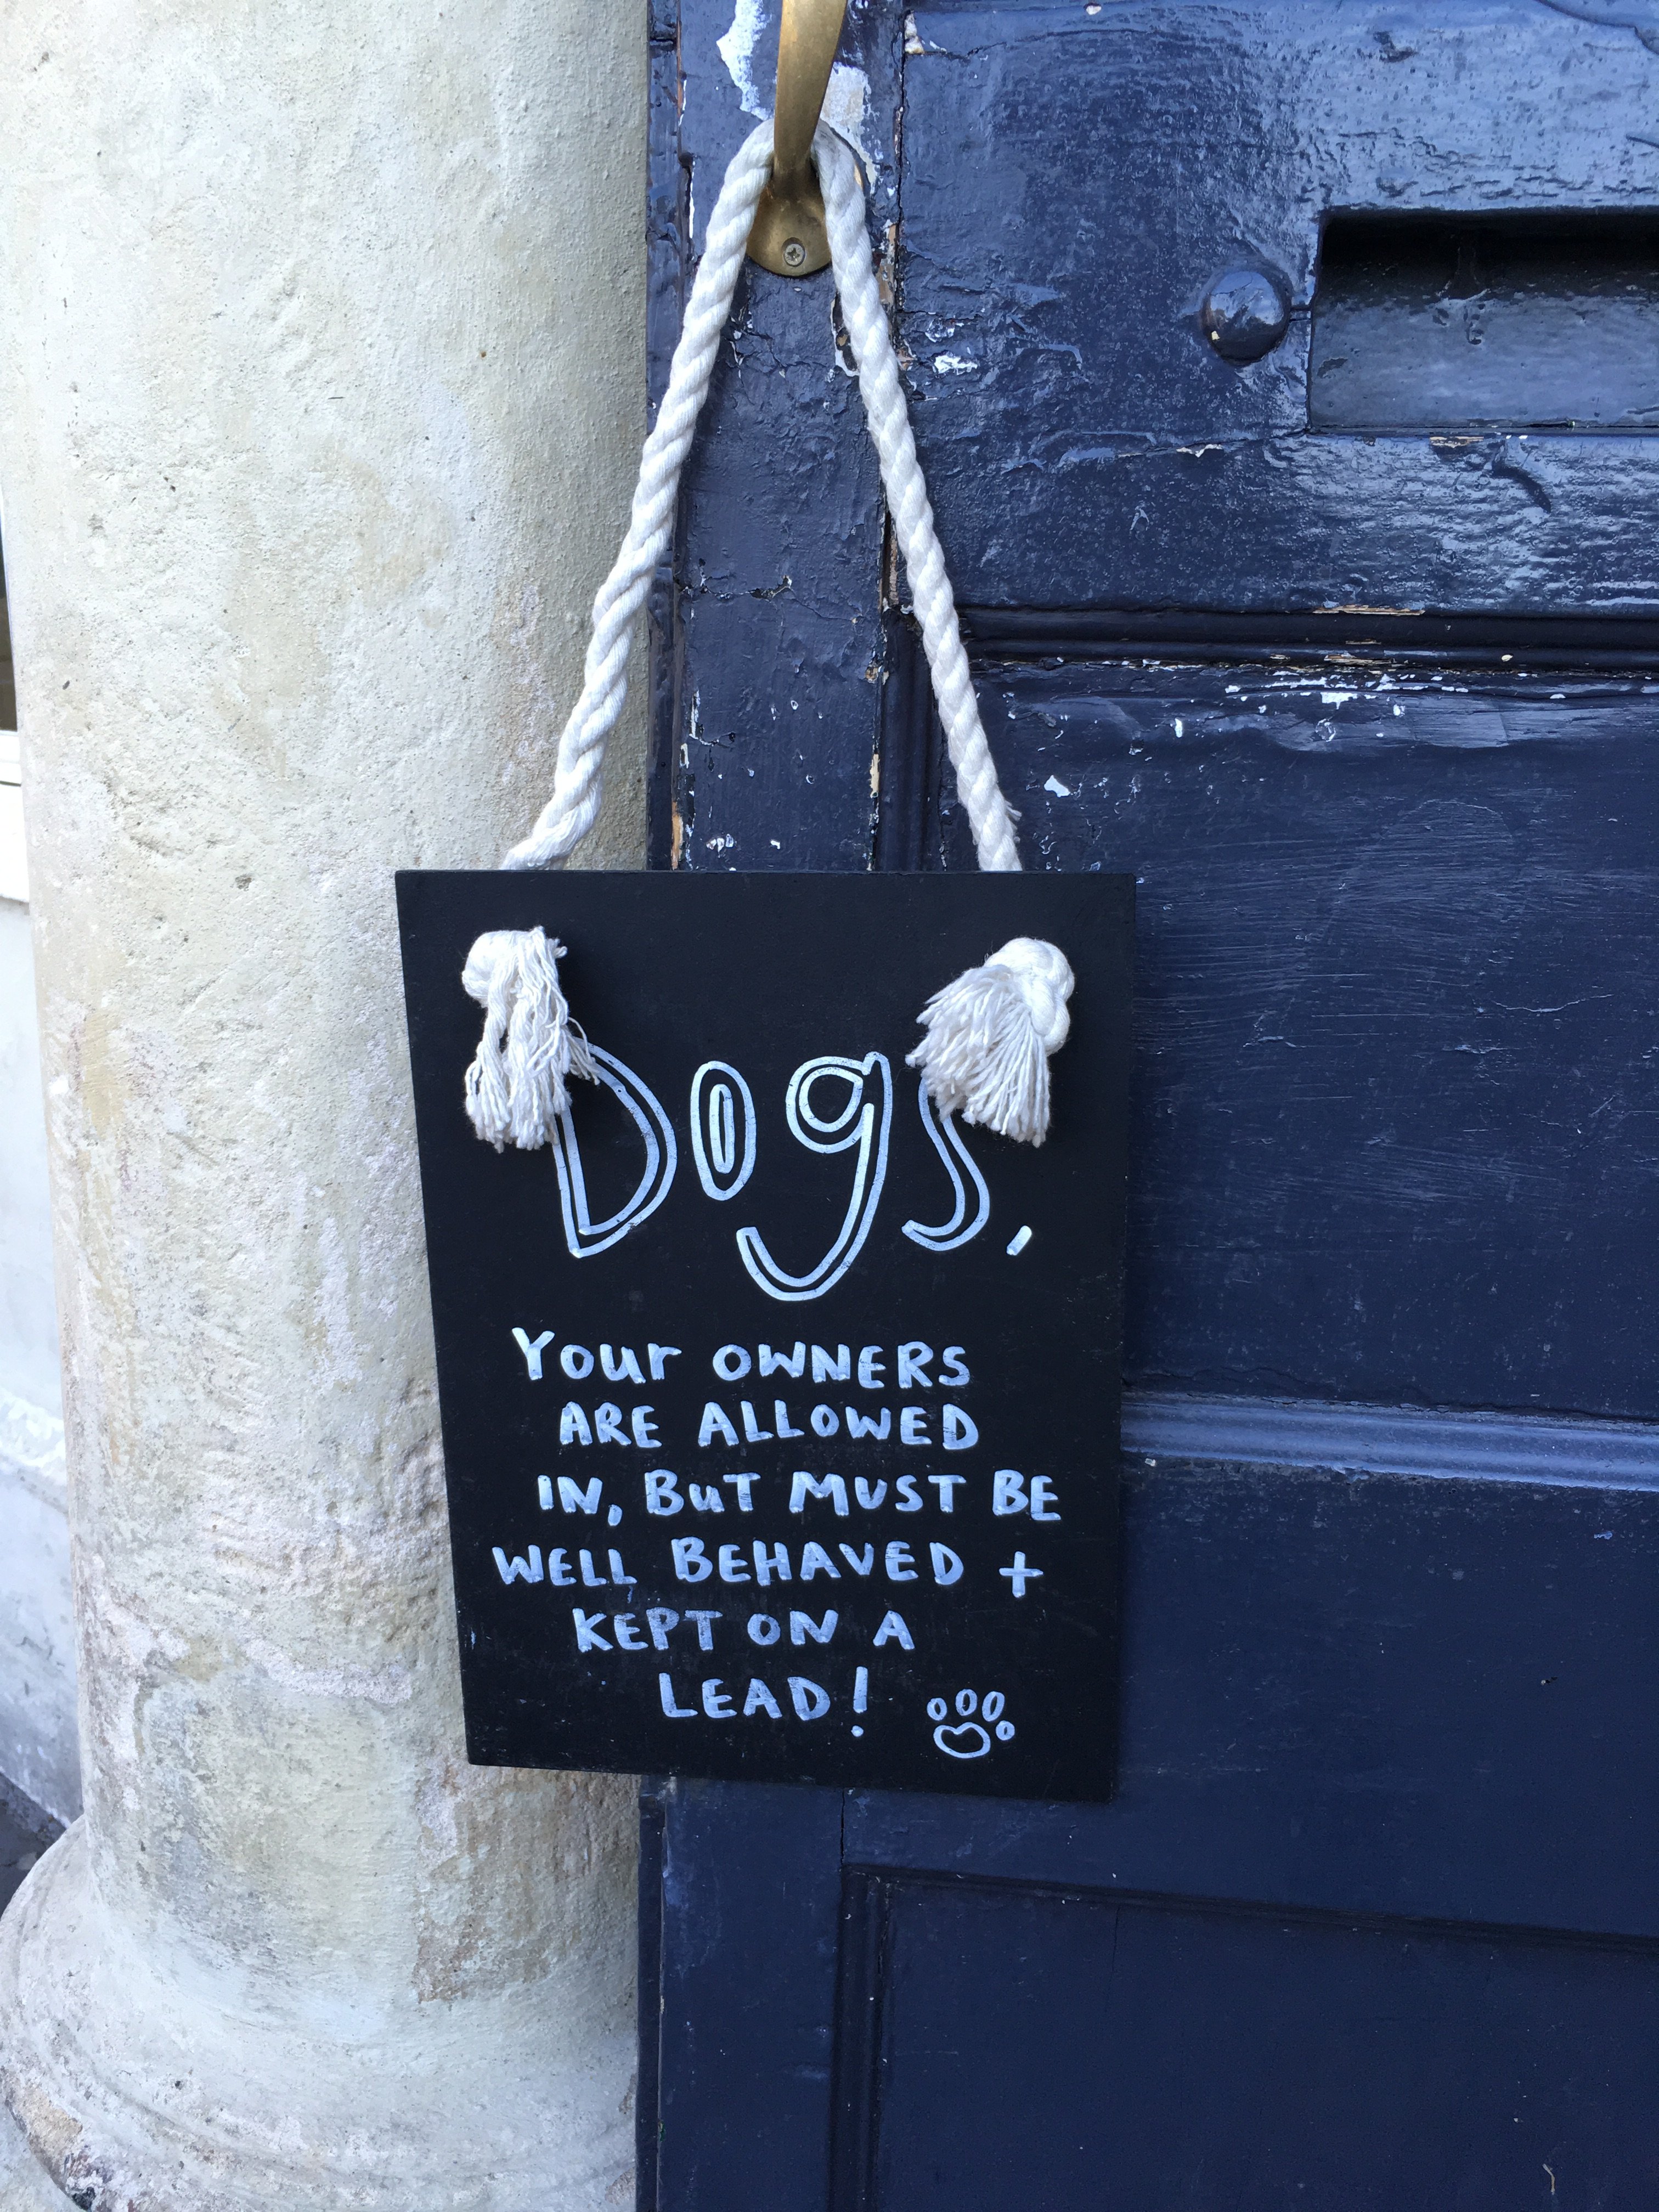 Dogs,
Your OWNERS
ARE ALLOWED
IN, BuT MUST BE
WELL BEHAVED +
KEPT ON A
LEAD!